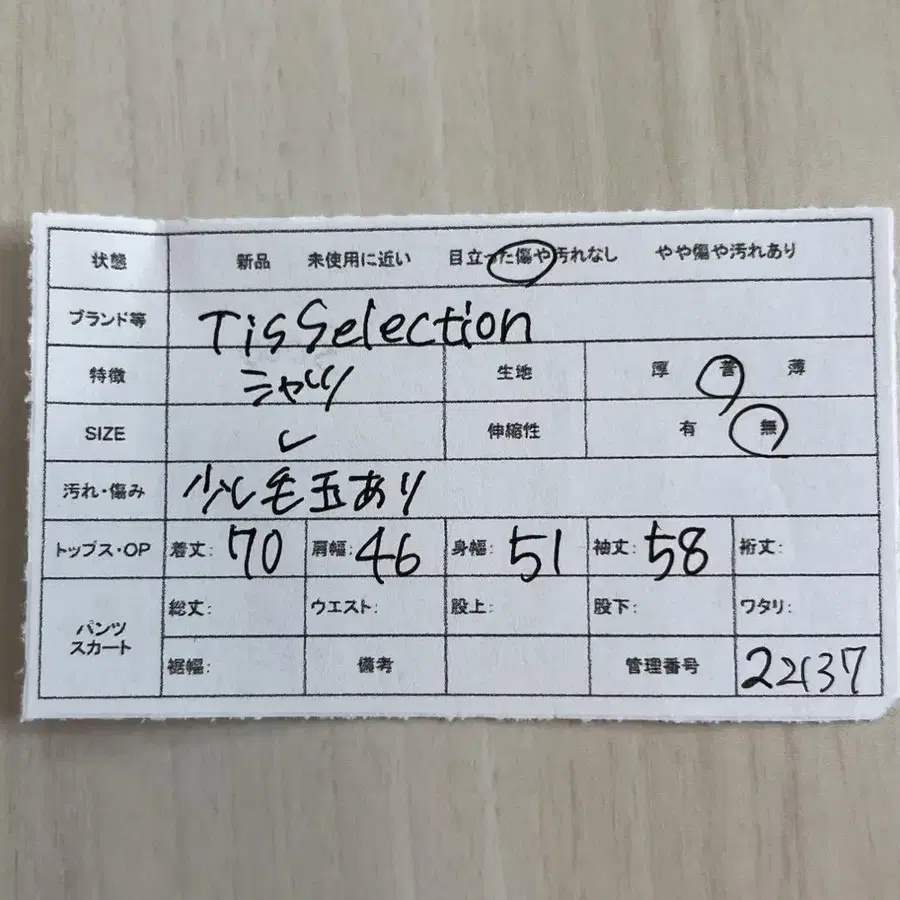 状態 新品 未使用に近い 目立った傷や汚れなし やや傷や汚れあり
ブランド等 TisSelection
特徴 シャツ 生地 厚 普 薄
SIZE 伸縮性 有 無
汚れ・傷み 少し毛玉あり
トップス・OP 着丈: 70 肩幅: 46 身幅: 51 袖丈: 58 裄丈:
パンツ スカート 総丈: ウエスト: 股上: 股下: ワタリ:
裾幅: 備考 管理番号 22137